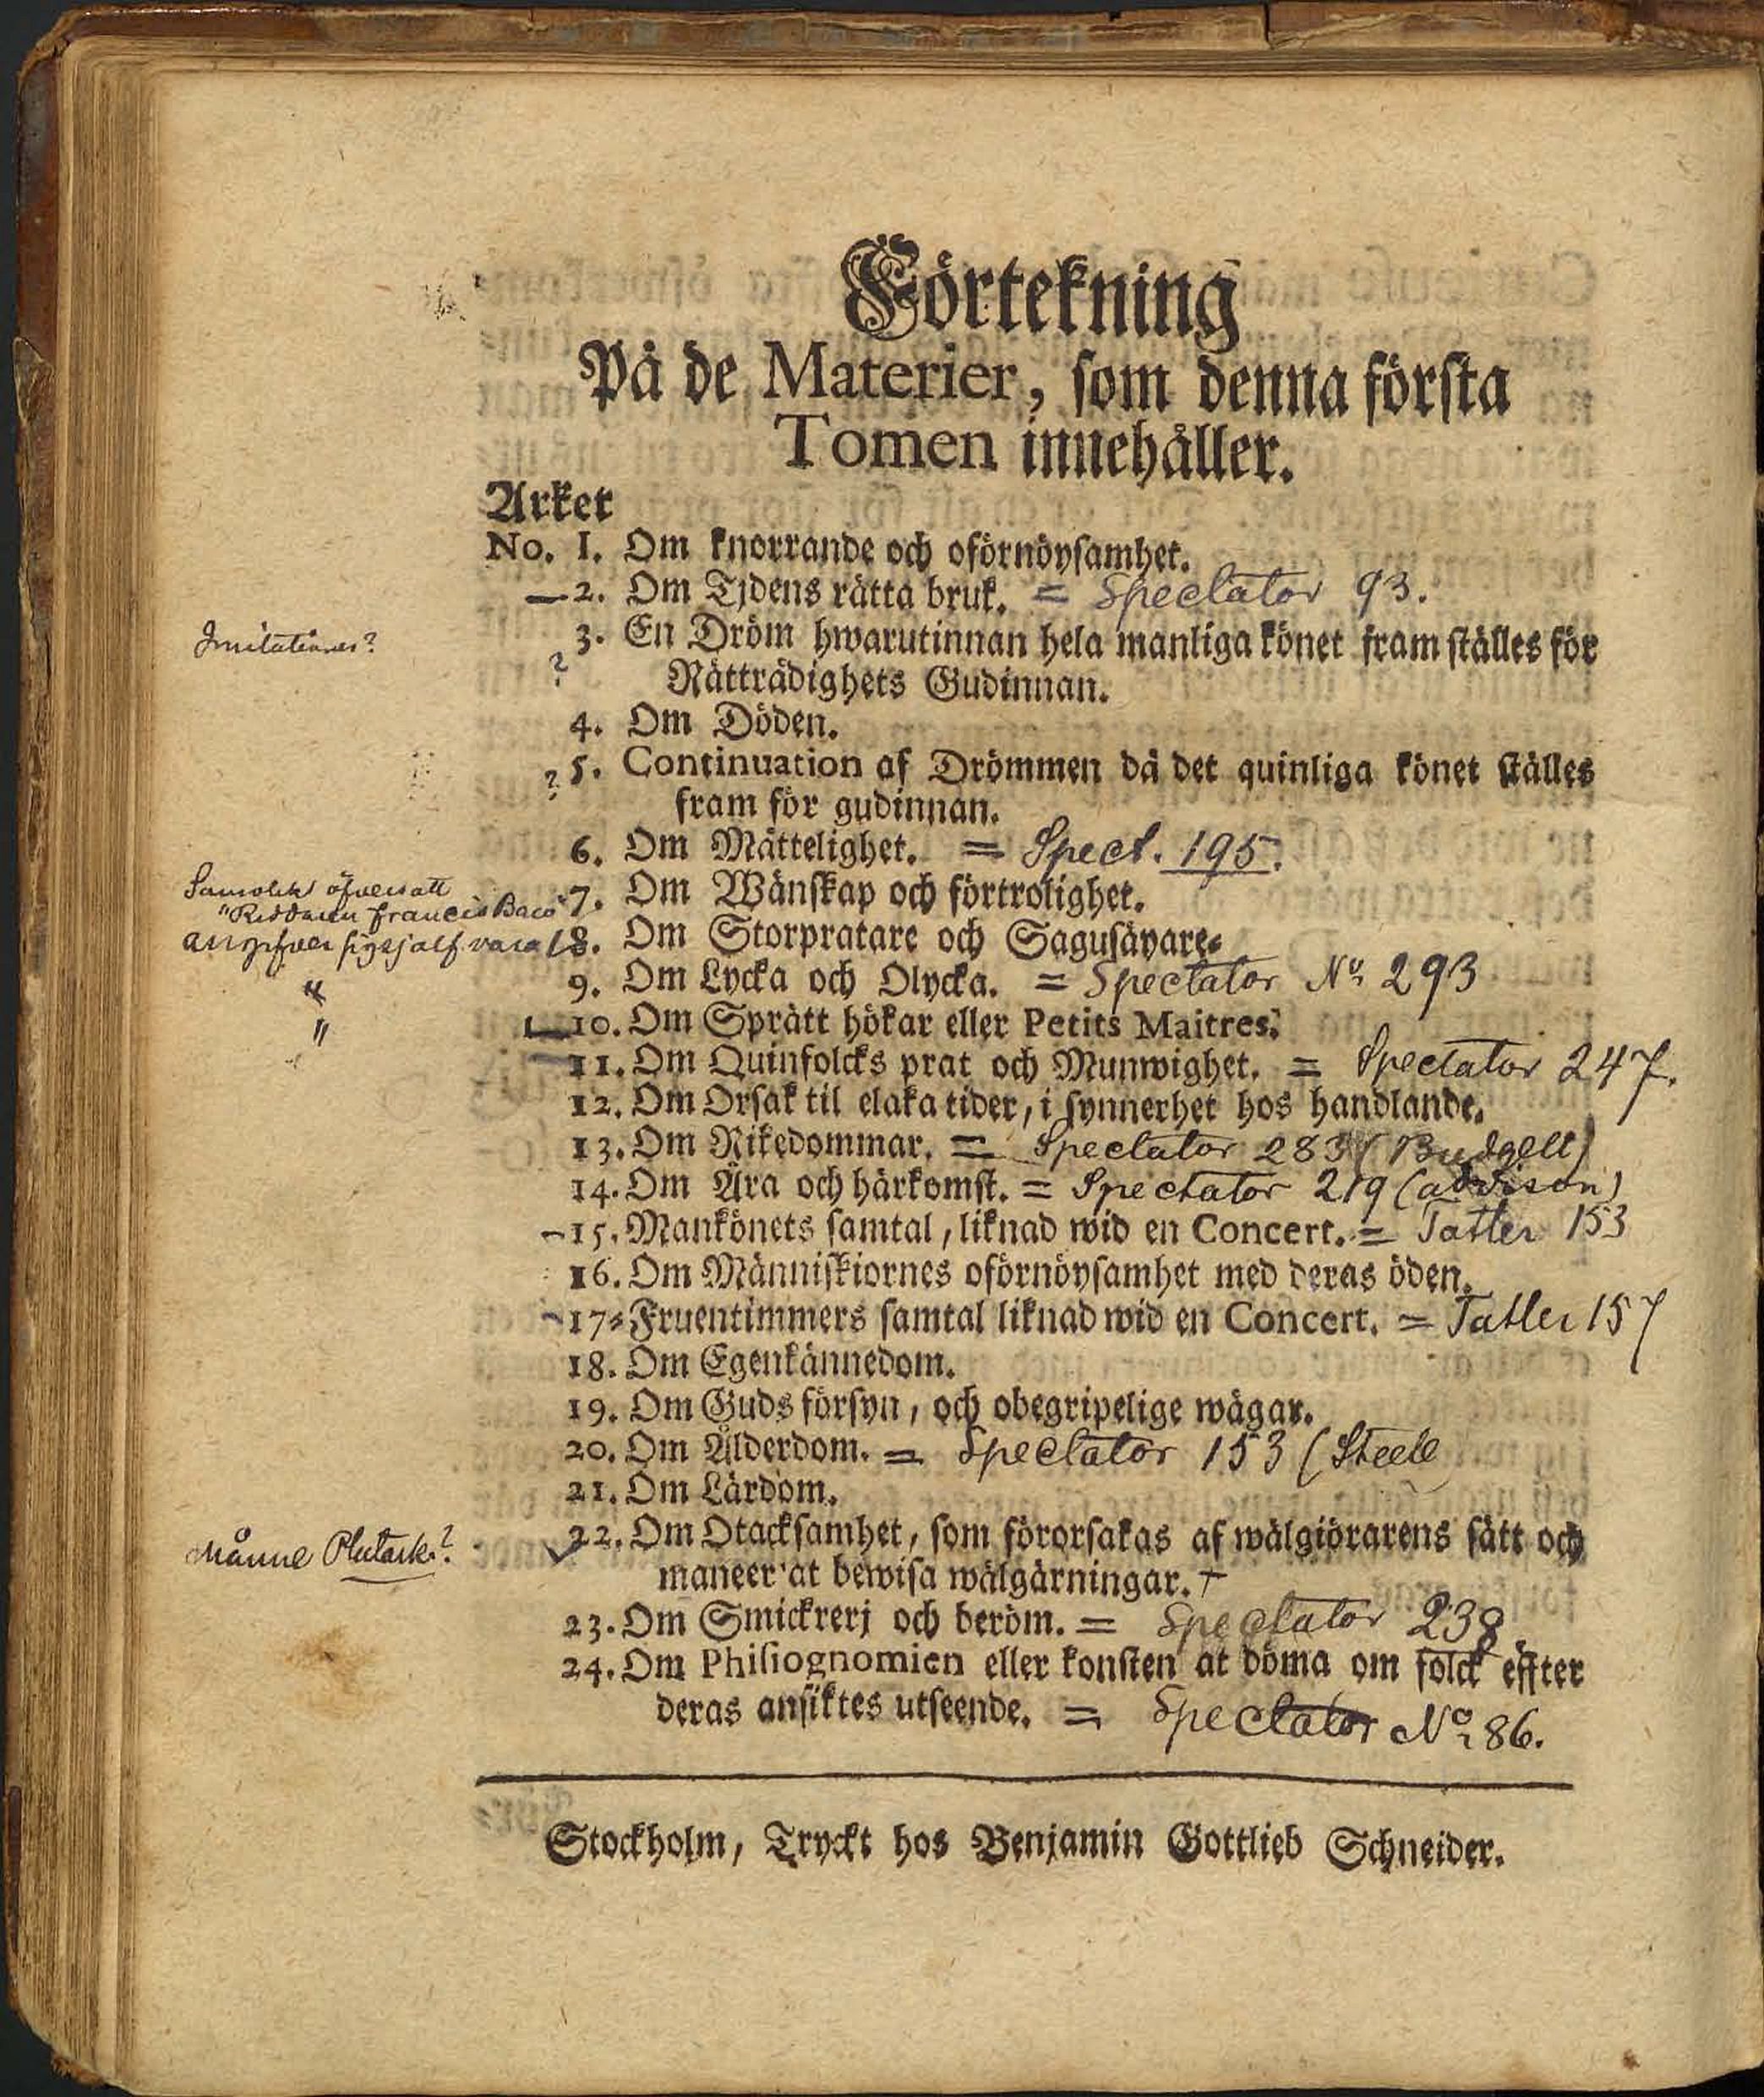 Förtekning
På de Materier, som denna första
Tomen innehåller.
Arket
No. 1. Om knorrande och oförnöysamhet.
—2. Om Tjdens rätta bruk. = Spectator 93.
Imitationer?
3. En Dröm hwarutinnan hela manliga könet framställes för
? Rätträdighets Gudinnan.
4. Om Döden.
? 5. Continuation af Drömmen då det quinliga könet ställes
fram för gudinnan.
6. Om Måttelighet. = Spect. 195.
öfversatt
"Riddaren Francis Baco" 7. Om Wänskap och förtrolighet.
8. Om Storpratare och Sagusäyare.
9. Om Lycka och Olycka. = Spectator No 293
"
"
10. Om Sprätt hökar eller Petits Maitres.
11. Om Quinfolcks prat och Munwighet. = Spectator 247.
12. Om Orsak til elaka tider, i synnerhet hos handlande.
13. Om Rikedommar. = Spectator 283 (Budgell)
14. Om Ära och härkomst. = Spectator 219 (addison)
-15. Mankönets samtal, liknad wid en Concert. = Tatler 153
16. Om Människiornes oförnöysamhet med deras öden.
-17. Fruentimmers samtal liknad wid en Concert. = Tatler 157
18. Om Egenkännedom.
19. Om Guds försyn, och obegripelige wägar.
20. Om Ålderdom. = Spectator 153 (Steele
21. Om Lärdom.
Månne Plutark?
22. Om Otacksamhet, som förorsakas af wälgiörarens sätt och
maneer at bewisa wälgärningar. +
23. Om Smickrerj och beröm. = Spectator 238
24. Om Phisiognomien eller konsten at döma om folck effter
deras ansiktes utseende. = Spectator No 86.
Stockholm, Tryckt hos Benjamin Gottlieb Schneider.